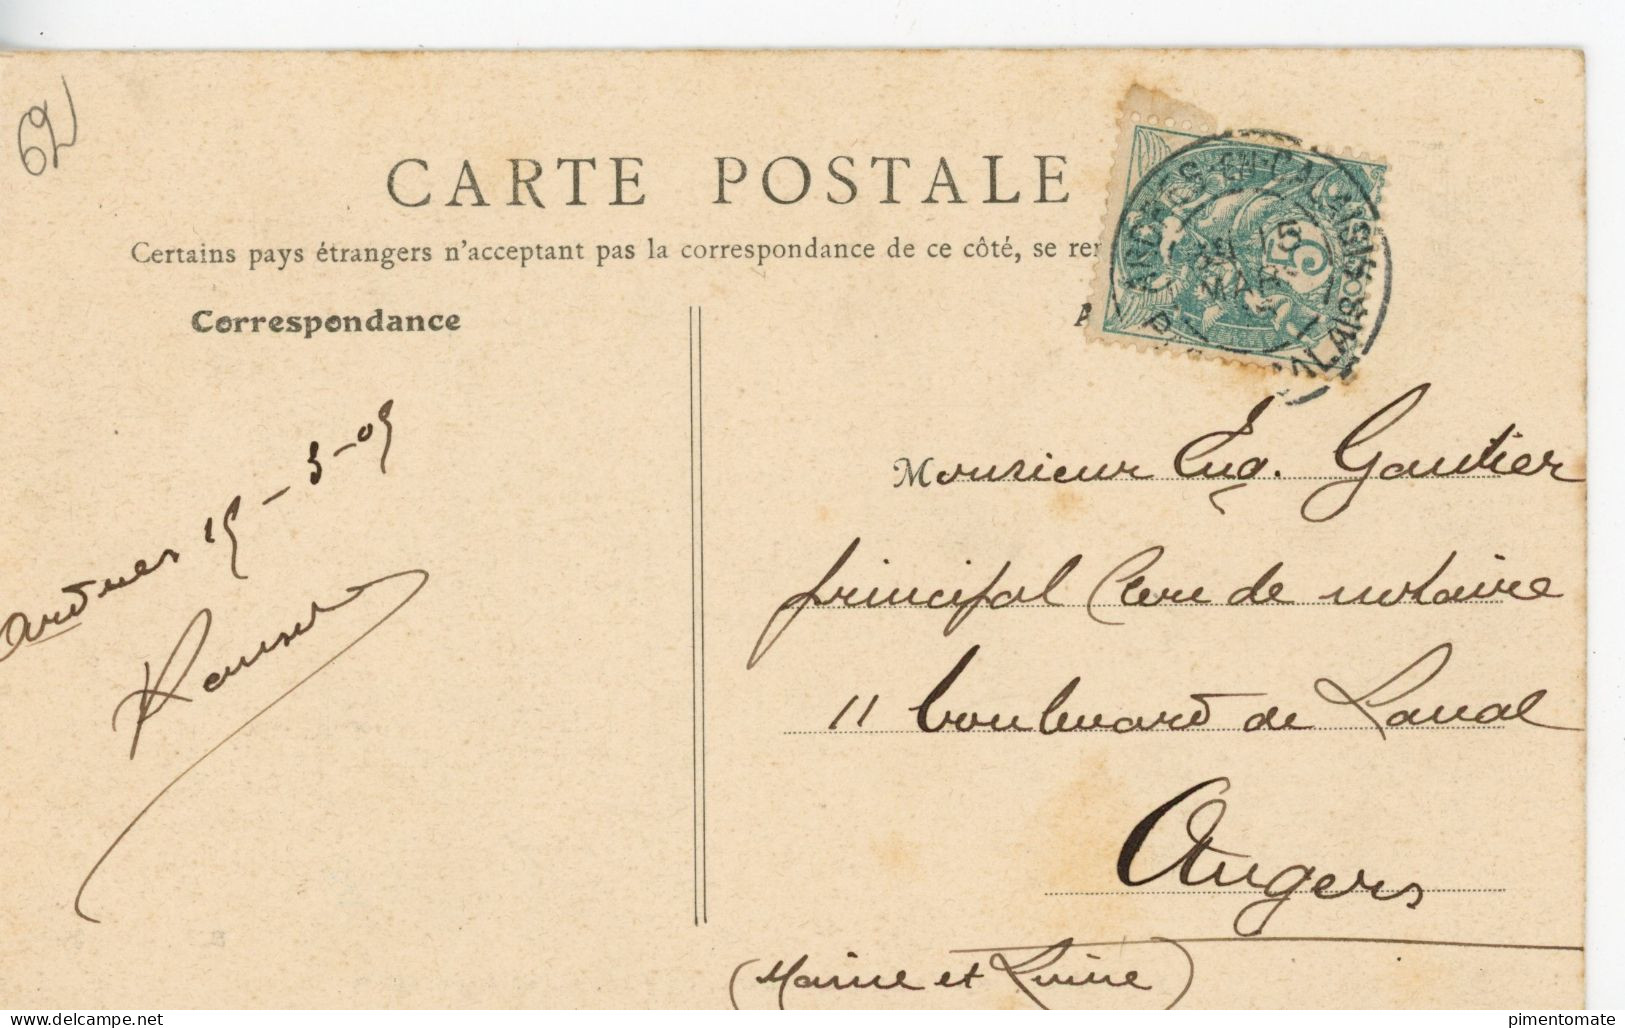 62
CARTE POSTALE
Certains pays étrangers n'acceptant pas la correspondance de ce côté, se ren
Correspondance
ARDRES-EN-CALAISIS
15
MAR
5
Ardres 15-3-05
Monsieur Eug. Gautier
principal Clerc de notaire
11 boulevard de Laval
Angers
(Maine et Loire)
www.delcampe.net
pimentomate